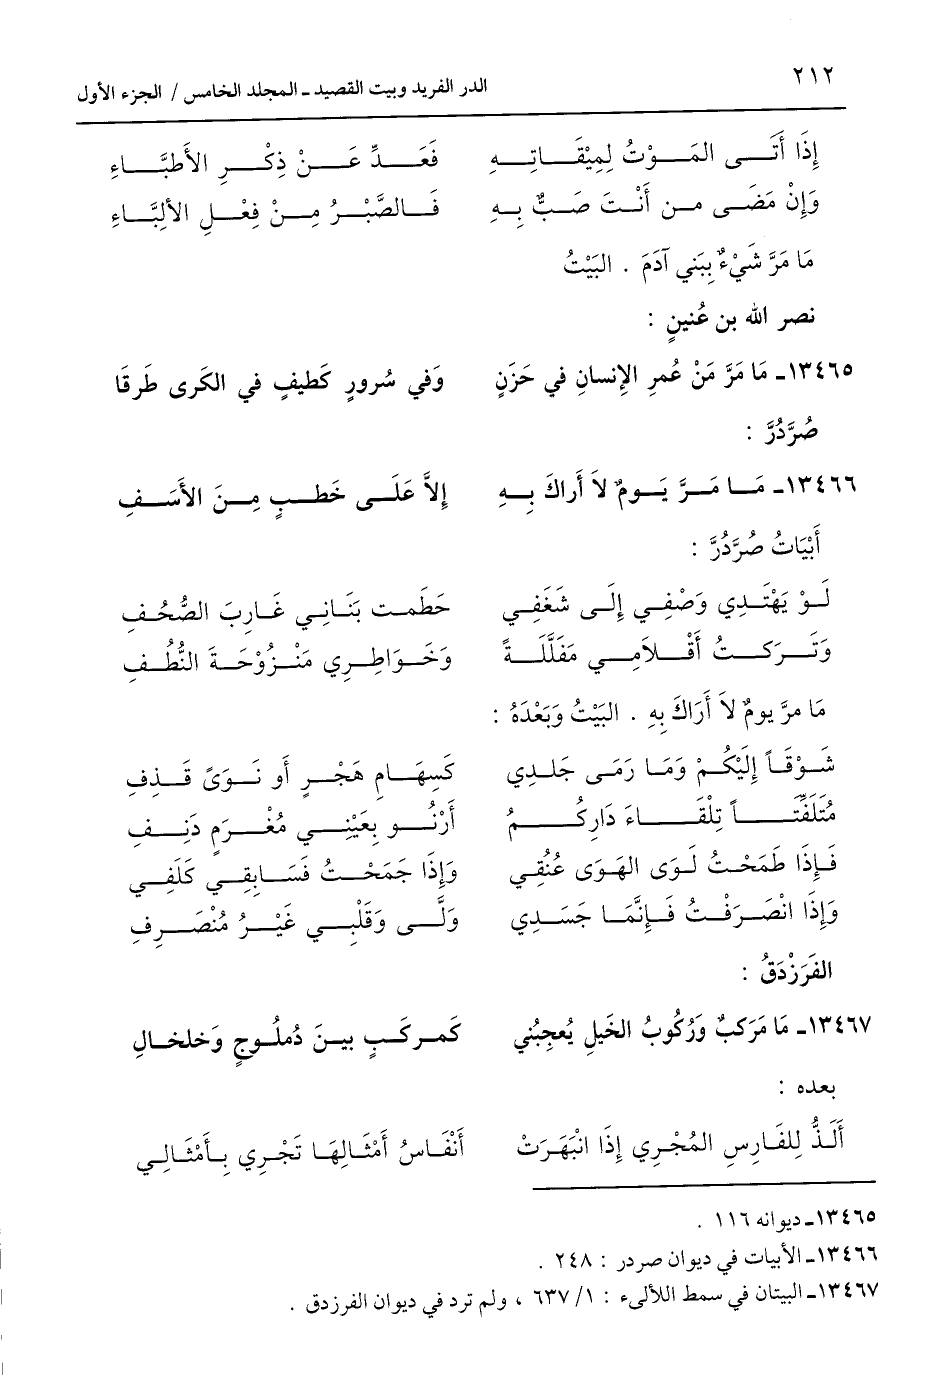 ٢١٢ الدر الفريد وبيت القصيد ـ المجلد الخامس / الجزء الأول
إِذَا أَتَـى المَـوْتُ لِمِيْقَـاتِـهِ فَعَـدِّ عَـنْ ذِكْـرِ الأَطِبَّـاءِ
وَإِنْ مَضَـى مـن أَنْـتَ صَـبٌّ بِـهِ فَـالصَّبْـرُ مِـنْ فِعْـلِ الألِبَّـاءِ
مَا مَرَّ شَيْءٌ بِبَنِي آدَمَ . البَيْتُ
نصر الله بن عُنينٍ :
١٣٤٦٥ـ مَا مَرَّ مَنْ عُمرِ الإِنسانِ في حَزَنٍ وَفي سُرورٍ كَطيفٍ في الكَرى طَرقَا
صُرَّدُرَّ :
١٣٤٦٦ـ مَـا مَـرَّ يَـومٌ لاَ أَراكَ بِـهِ إِلاَّ عَلَـى خَطـبٍ مِـنَ الأَسَـفِ
أَبْيَاتُ صُرَّدُرَّ :
لَـوْ يَهْتَـدِي وَصْفِـي إِلَـى شَغَفِـي حَطَمـت بَنَـانِي غَـارِبَ الصُّحُـفِ
وَتَـرَكـتُ أَقْـلاَمِـي مَفَلَّلَـةً وَخَـوَاطِـرِي مَنْـزُوْحَـةَ النُّطُـفِ
مَا مرَّ يومٌ لاَ أَرَاكَ بِهِ . البَيْتُ وَبَعْدَهُ :
شَـوْقَـاً إِلَيْكُـمْ وَمَـا رَمَـى جَلَـدِي كَسِهَـامِ هَجْـرٍ أو نَـوَىً قَـذِفِ
مُتَلَفِّتَـاً تِلْقَـاءَ دَارِكُـمُ أَرْنُـو بِعَيْنِـي مُغْـرَمٍ دَنِـفِ
فَـإِذَا طَمَحْـتُ لَـوَى الهَـوَى عنُقِـي وَإِذَا جَمَحْـتُ فَسَـابِقِـي كَلَفِـي
وَإِذَا انْصَـرَفْـتُ فَـإِنَّمَـا جَسَـدِي وَلَّـى وَقَلْبِـي غَيْـرُ مُنْصَـرِفِ
الفَرَزْدَقُ :
١٣٤٦٧ـ مَا مَركَبٌ وَرُكُوبُ الخَيلِ يُعجِبُني كَمـركَـبٍ بيـنَ دُملُـوجٍ وَخلخـالِ
بعده :
أَلَـذُّ لِلفَـارِسِ المُجْـرِي إِذَا انْبَهَـرَتْ أَنْفَـاسُ أَمْثَـالِهَـا تَجْـرِي بِـأَمْثَـالِـي
١٣٤٦٥ـ ديوانه ١١٦ .
١٣٤٦٦ـ الأبيات في ديوان صردر : ٢٤٨ .
١٣٤٦٧ـ البيتان في سمط اللآلىء : ١/ ٦٣٧ ، ولم ترد في ديوان الفرزدق .